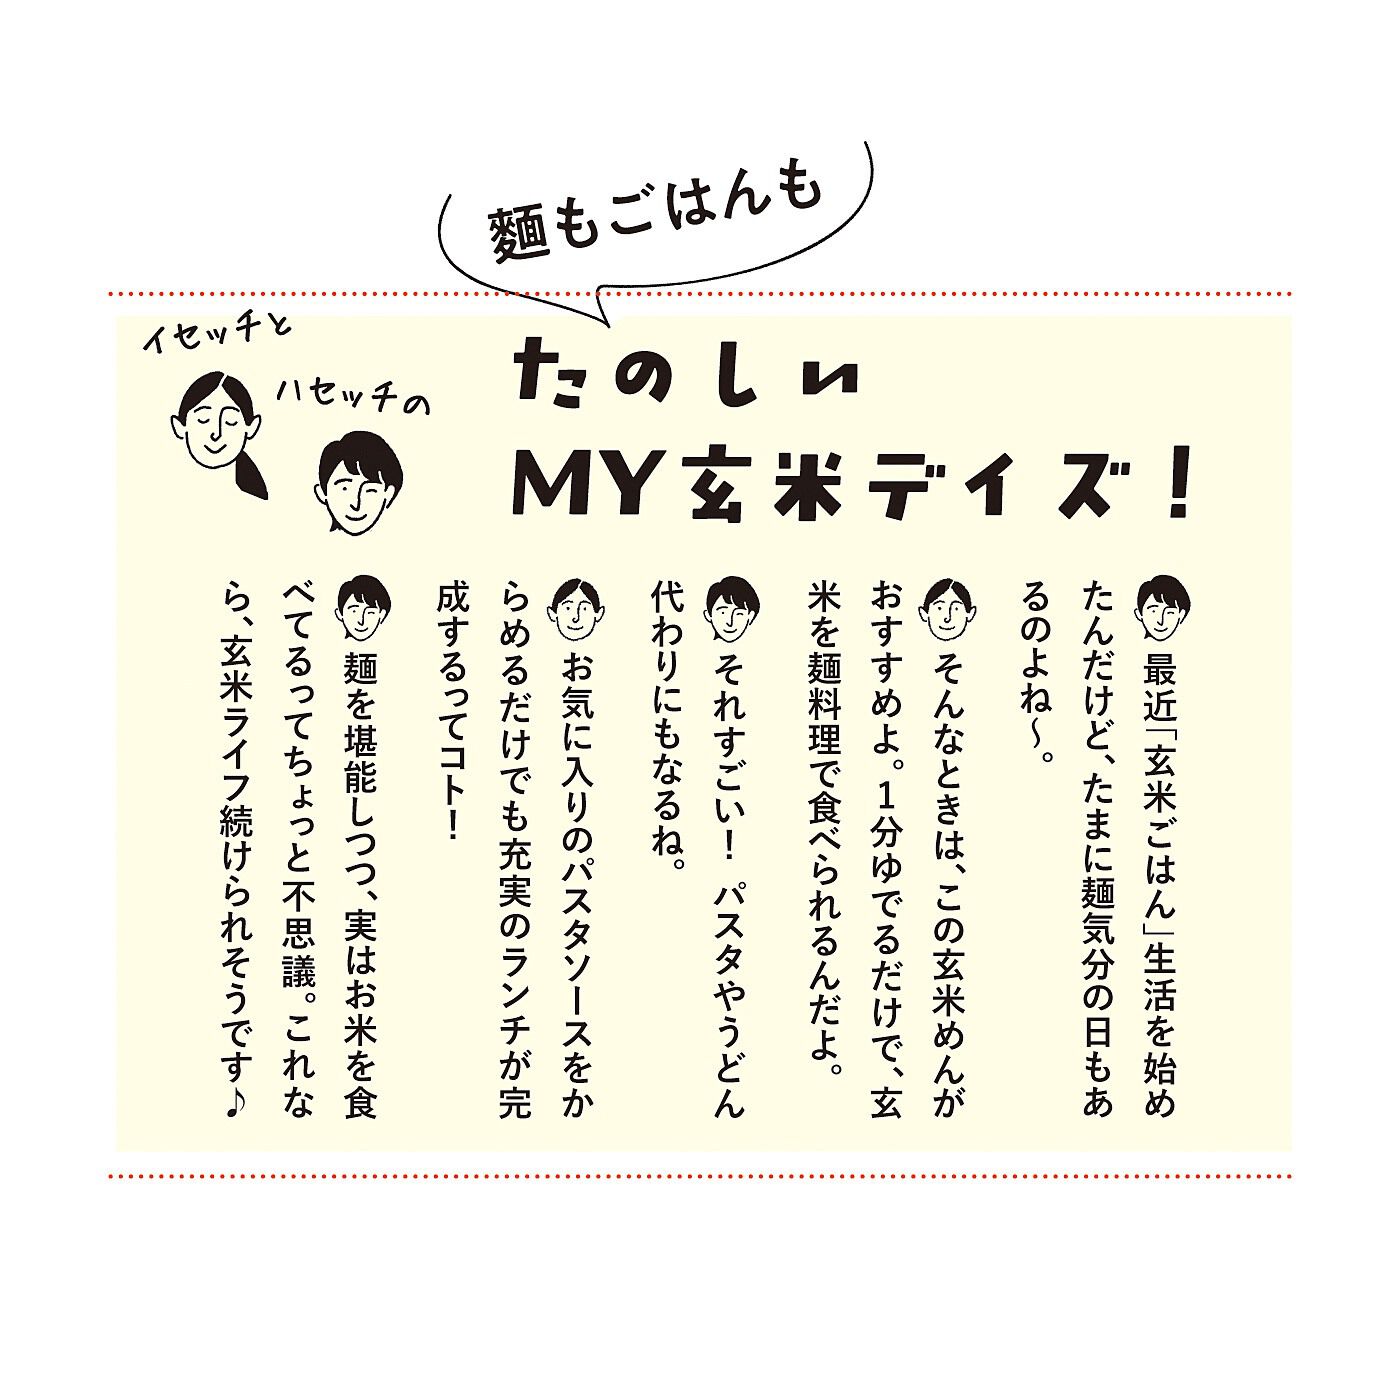 麵もごはんも
イセッチと
ハセッチの
たのしい
MY玄米デイズ！
最近「玄米ごはん」生活を始め
たんだけど、たまに麺気分の日もあ
るのよね〜。
そんなときは、この玄米めんが
おすすめよ。1分ゆでるだけで、玄
米を麺料理で食べられるんだよ。
それすごい！ パスタやうどん
代わりにもなるね。
お気に入りのパスタソースをか
らめるだけでも充実のランチが完
成するってコト！
麺を堪能しつつ、実はお米を食
べてるってちょっと不思議。これな
ら、玄米ライフ続けられそうです♪